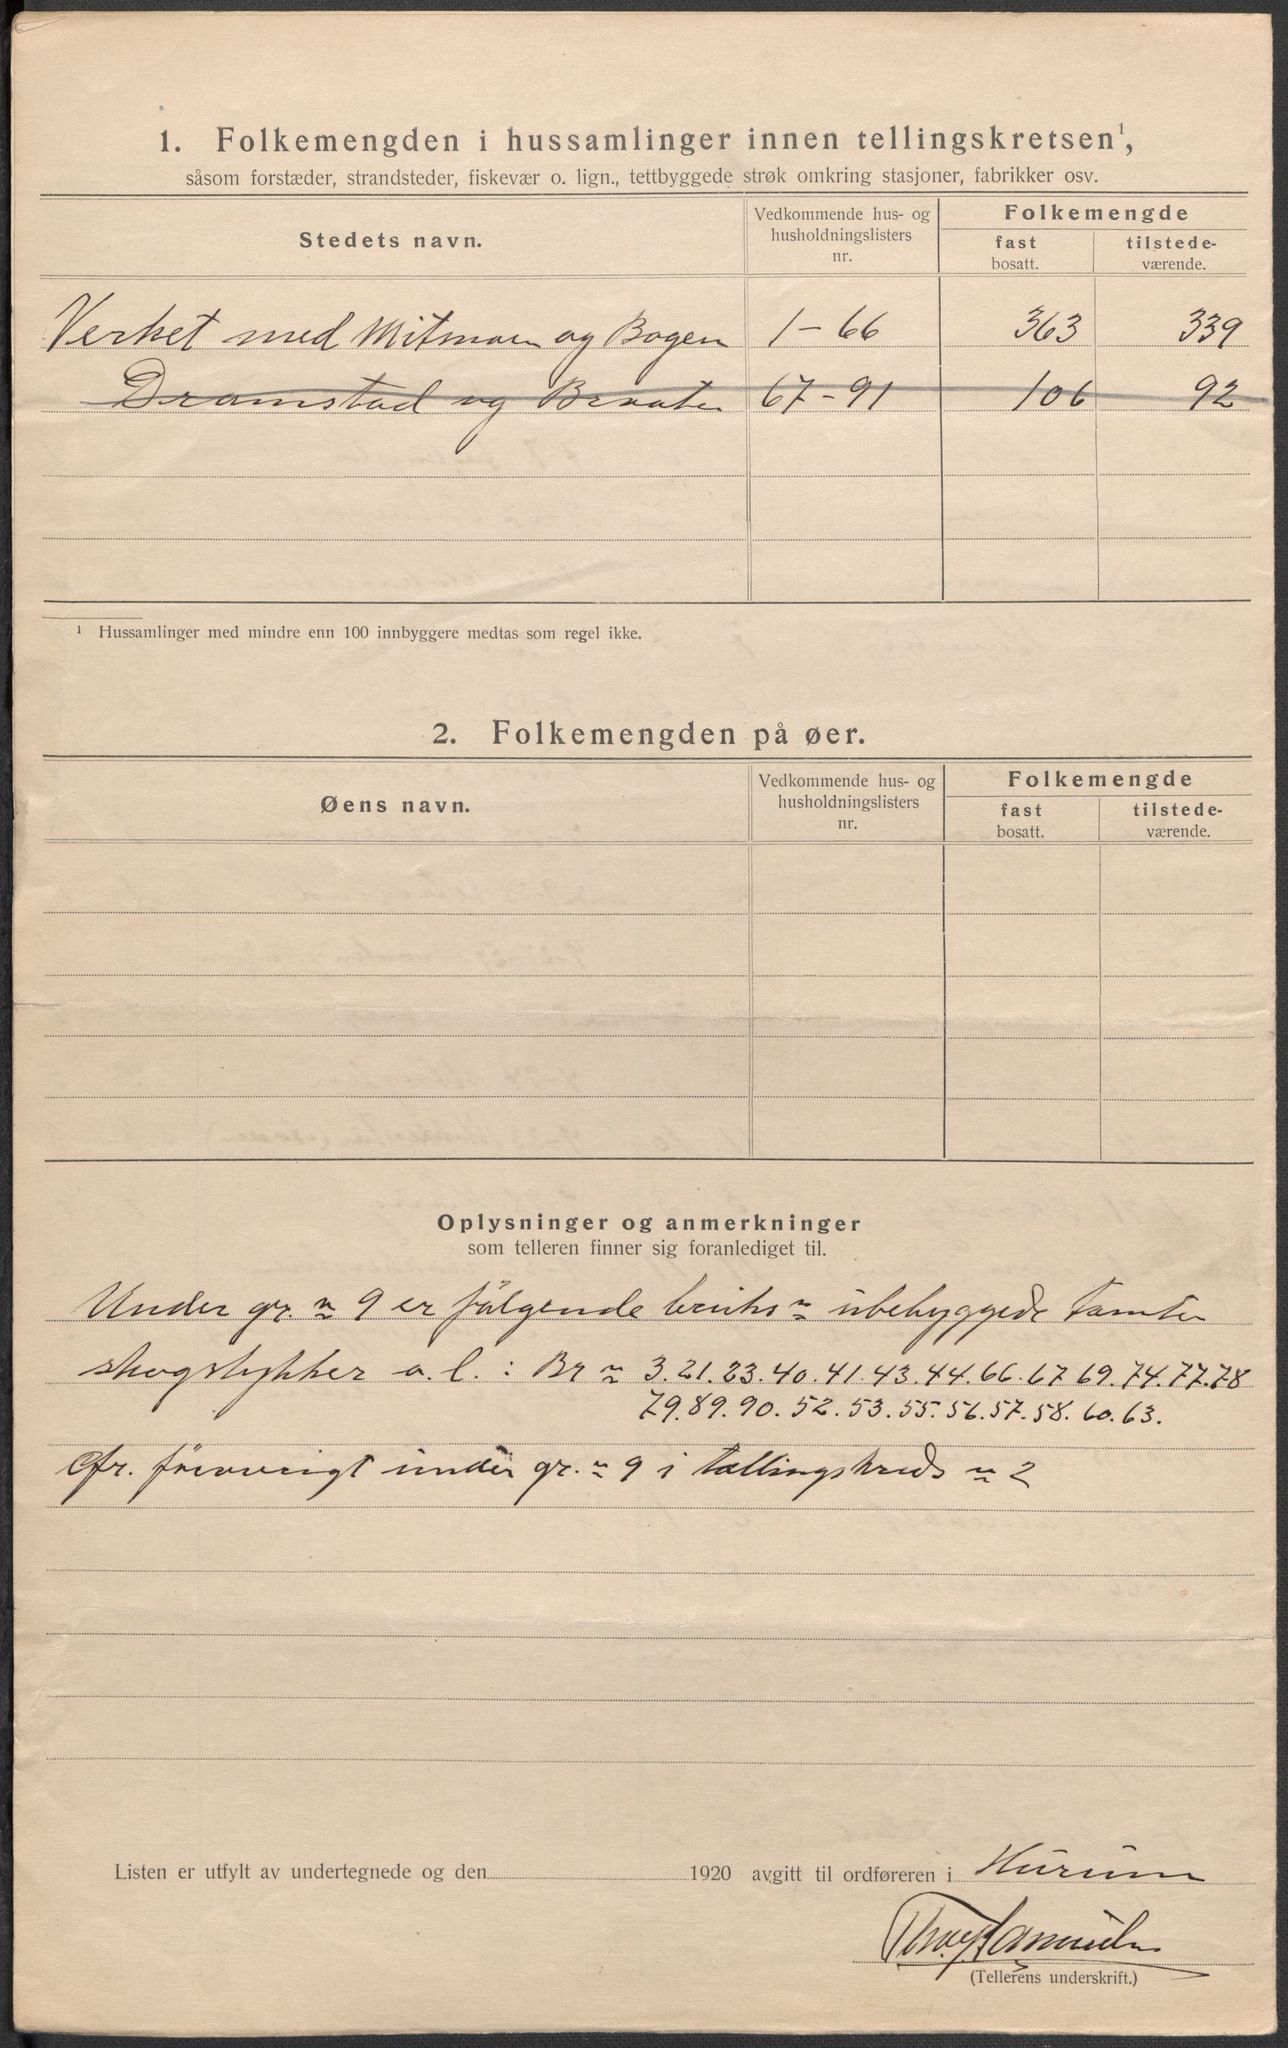 1. Folkemengden i hussamlinger innen tellingskretsen¹,
såsom forstæder, strandsteder, fiskevær o. lign., tettbyggede strøk omkring stasjoner, fabrikker osv.
Stedets navn. Vedkommende hus- og husholdningslisters nr. Folkemengde
fast bosatt. tilstede-værende.
Verket med Mitmoen og Bogen 1-66 363 339
Dramstad og Braaten 67-91 106 92
¹ Hussamlinger med mindre enn 100 innbyggere medtas som regel ikke.
2. Folkemengden på øer.
Øens navn. Vedkommende hus- og husholdningslisters nr. Folkemengde
fast bosatt. tilstede-værende.
Oplysninger og anmerkninger
som telleren finner sig foranlediget til.
Under gr. n 9 er følgende bruks n ubebyggede tomter
skogstykker o. l. : Br n 3. 21. 23. 40. 41. 43. 44. 66. 67 69. 74. 77. 78
79. 89. 90. 52. 53. 55. 56. 57. 58. 60. 63.
Cfr. forøvrigt under gr. n 9 i tællingskreds n 2
Listen er utfylt av undertegnede og den 1920 avgitt til ordføreren i Hurum
Samuelsen
(Tellerens underskrift.)